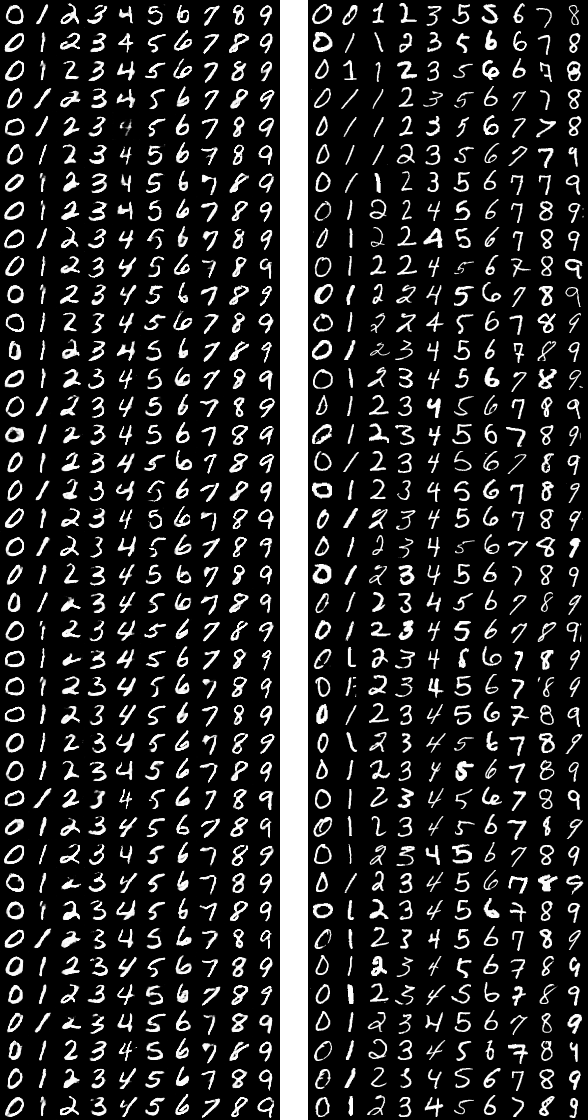 0 1 2 3 4 5 6 7 8 9 0 0 1 2 3 5 5 6 7 8
0 1 2 3 4 5 6 7 8 9 0 1 1 2 3 5 6 6 7 8
0 1 2 3 4 5 6 7 8 9 0 1 1 2 3 5 6 6 7 8
0 1 2 3 4 5 6 7 8 9 0 1 1 2 3 5 6 7 7 8
0 1 2 3 4 5 6 7 8 9 0 1 1 2 3 5 6 7 7 8
0 1 2 3 4 5 6 7 8 9 0 1 1 2 3 5 6 7 7 9
0 1 2 3 4 5 6 7 8 9 0 1 1 2 3 5 6 7 7 9
0 1 2 3 4 5 6 7 8 9 0 1 2 2 4 5 6 7 8 9
0 1 2 3 4 5 6 7 8 9 0 1 2 2 4 5 6 7 8 9
0 1 2 3 4 5 6 7 8 9 0 1 2 2 4 5 6 7 8 9
0 1 2 3 4 5 6 7 8 9 0 1 2 2 4 5 6 7 8 9
0 1 2 3 4 5 6 7 8 9 0 1 2 2 4 5 6 7 8 9
0 1 2 3 4 5 6 7 8 9 0 1 2 3 4 5 6 7 8 9
0 1 2 3 4 5 6 7 8 9 0 1 2 3 4 5 6 7 8 9
0 1 2 3 4 5 6 7 8 9 0 1 2 3 4 5 6 7 8 9
0 1 2 3 4 5 6 7 8 9 0 1 2 3 4 5 6 7 8 9
0 1 2 3 4 5 6 7 8 9 0 1 2 3 4 5 6 7 8 9
0 1 2 3 4 5 6 7 8 9 0 1 2 3 4 5 6 7 8 9
0 1 2 3 4 5 6 7 8 9 0 1 2 3 4 5 6 7 8 9
0 1 2 3 4 5 6 7 8 9 0 1 2 3 4 5 6 7 8 9
0 1 2 3 4 5 6 7 8 9 0 1 2 3 4 5 6 7 8 9
0 1 2 3 4 5 6 7 8 9 0 1 2 3 4 5 6 7 8 9
0 1 2 3 4 5 6 7 8 9 0 1 2 3 4 5 6 7 8 9
0 1 2 3 4 5 6 7 8 9 0 1 2 3 4 5 6 7 8 9
0 1 2 3 4 5 6 7 8 9 0 1 2 3 4 5 6 7 8 9
0 1 2 3 4 5 6 7 8 9 0 1 2 3 4 5 6 7 8 9
0 1 2 3 4 5 6 7 8 9 0 1 2 3 4 5 6 7 8 9
0 1 2 3 4 5 6 7 8 9 0 1 2 3 4 5 6 7 8 9
0 1 2 3 4 5 6 7 8 9 0 1 2 3 4 5 6 7 8 9
0 1 2 3 4 5 6 7 8 9 0 1 2 3 4 5 6 7 8 9
0 1 2 3 4 5 6 7 8 9 0 1 2 3 4 5 6 7 8 9
0 1 2 3 4 5 6 7 8 9 0 1 2 3 4 5 6 7 8 9
0 1 2 3 4 5 6 7 8 9 0 1 2 3 4 5 6 7 8 9
0 1 2 3 4 5 6 7 8 9 0 1 2 3 4 5 6 7 8 9
0 1 2 3 4 5 6 7 8 9 0 1 2 3 4 5 6 7 8 9
0 1 2 3 4 5 6 7 8 9 0 1 2 3 4 5 6 7 8 9
0 1 2 3 4 5 6 7 8 9 0 1 2 3 4 5 6 7 8 9
0 1 2 3 4 5 6 7 8 9 0 1 2 3 4 5 6 7 8 9
0 1 2 3 4 5 6 7 8 9 0 1 2 3 4 5 6 7 8 9
0 1 2 3 4 5 6 7 8 9 0 1 2 3 4 5 6 7 8 9